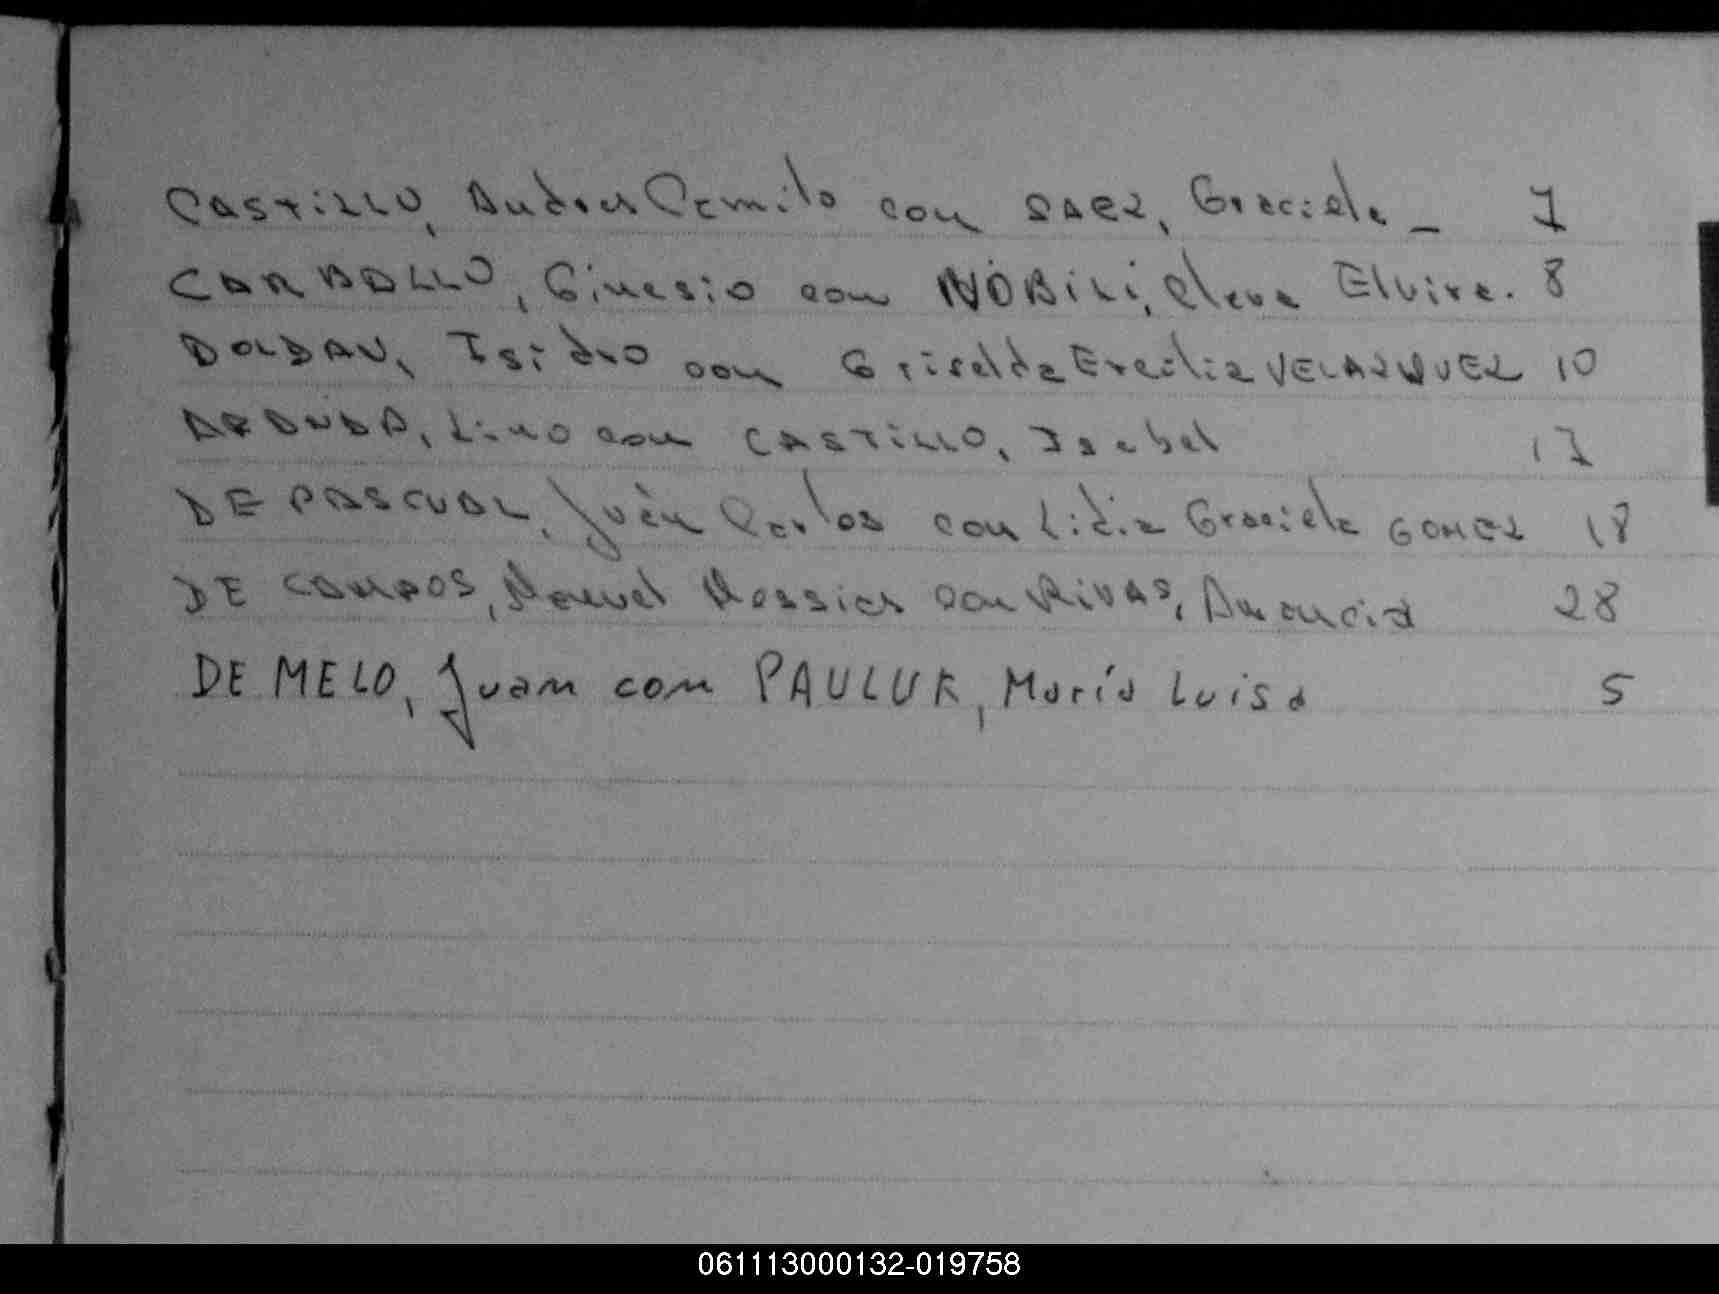 CASTILLO, Andres Camilo con SAEZ, Graciela _ 7
CARBALLO, Ginesio con NOBILI, Clara Elvira. 8
DOLDAN, Isidro con Griselda Ercilia VELAZQUEZ 10
ARANDA, Lino con CASTILLO, Isabel 17
DE PASCUAL, Juan Carlos con Lidia Graciela GOMEZ 18
DE CAMPOS, Manuel Messias con RIVAS, 28
DE MELO, Juan con PAULUK, María Luisa 5
061113000132-019758